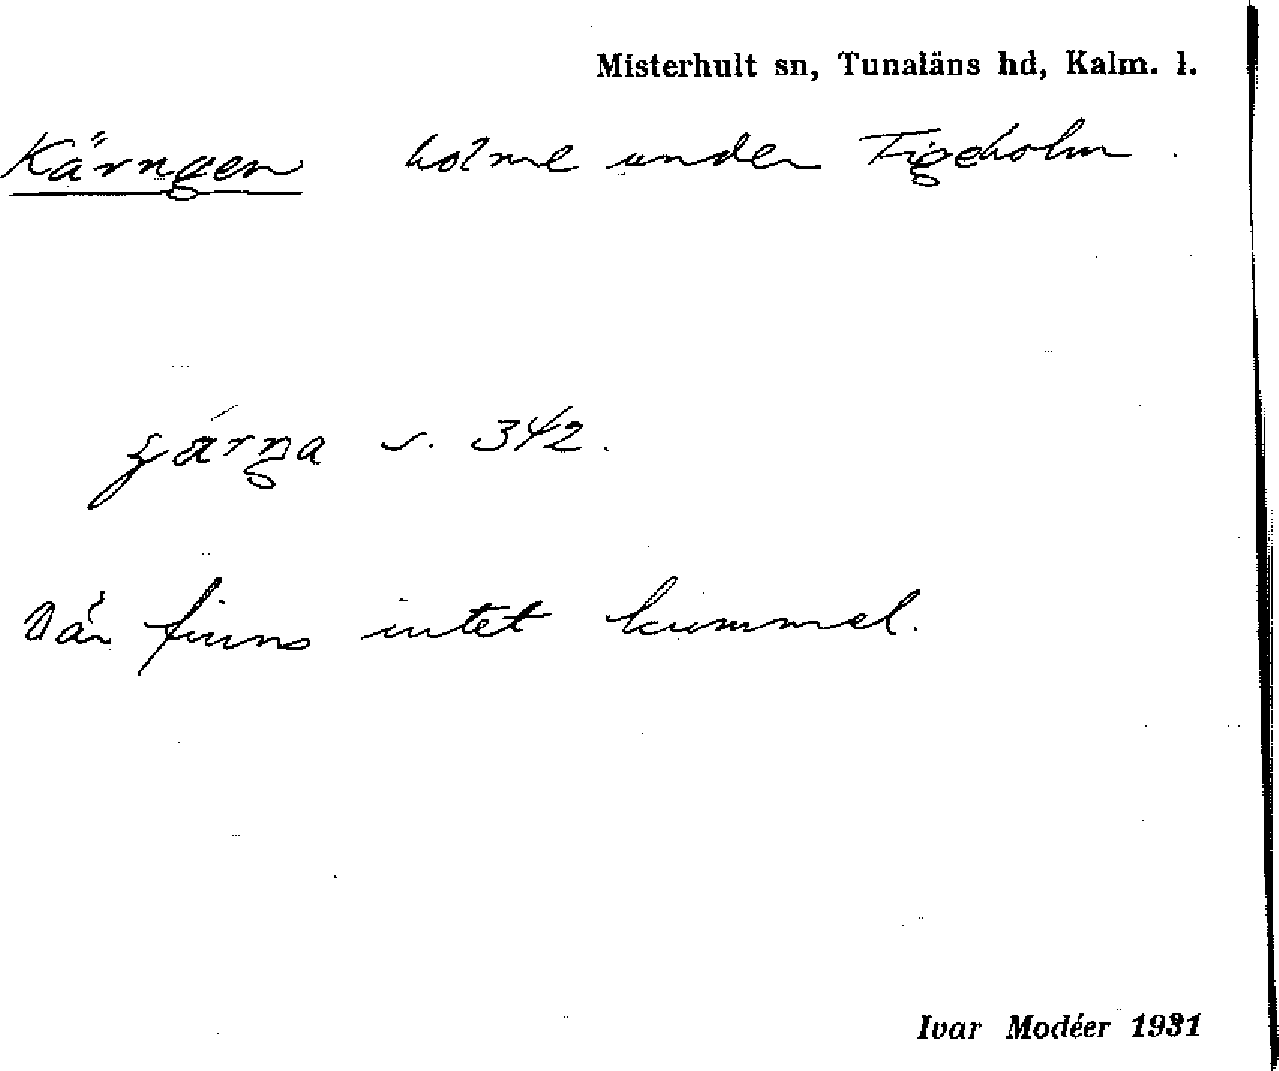 Misterhult sn, Tunaläns hd, Kalm. l.
Kärngen holme under Figeholm.
s. 342.
Där finns intet kummel.
Ivar Modéer 1931